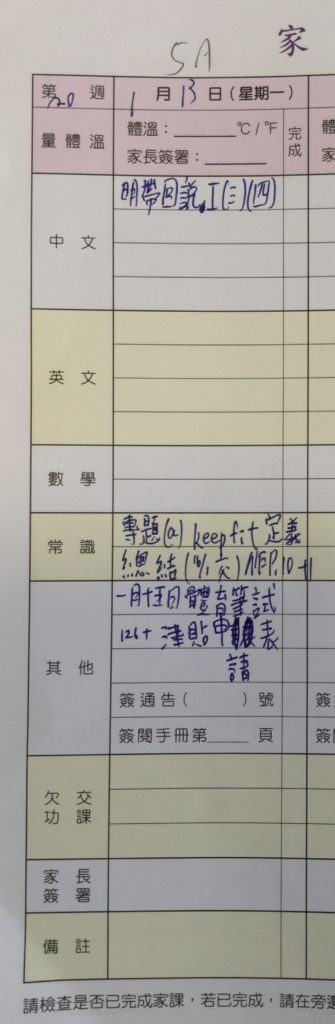 5A
家
第 20 週
1 月 13 日 (星期一)
量 體 溫
體溫：______ °C / °F
家長簽署：______
完成
中 文
明帶回說, I(三)(四)
英 文
數 學
常 識
專題(a) keep fit 定義
總結 (
其 他
一月十五日體育筆試
126+ 津貼申 表
請
簽通告 ( ) 號
簽閱手冊第____ 頁
簽
簽
欠 交
功 課
家 長
簽 署
備 註
請檢查是否已完成家課，若已完成，請在旁邊